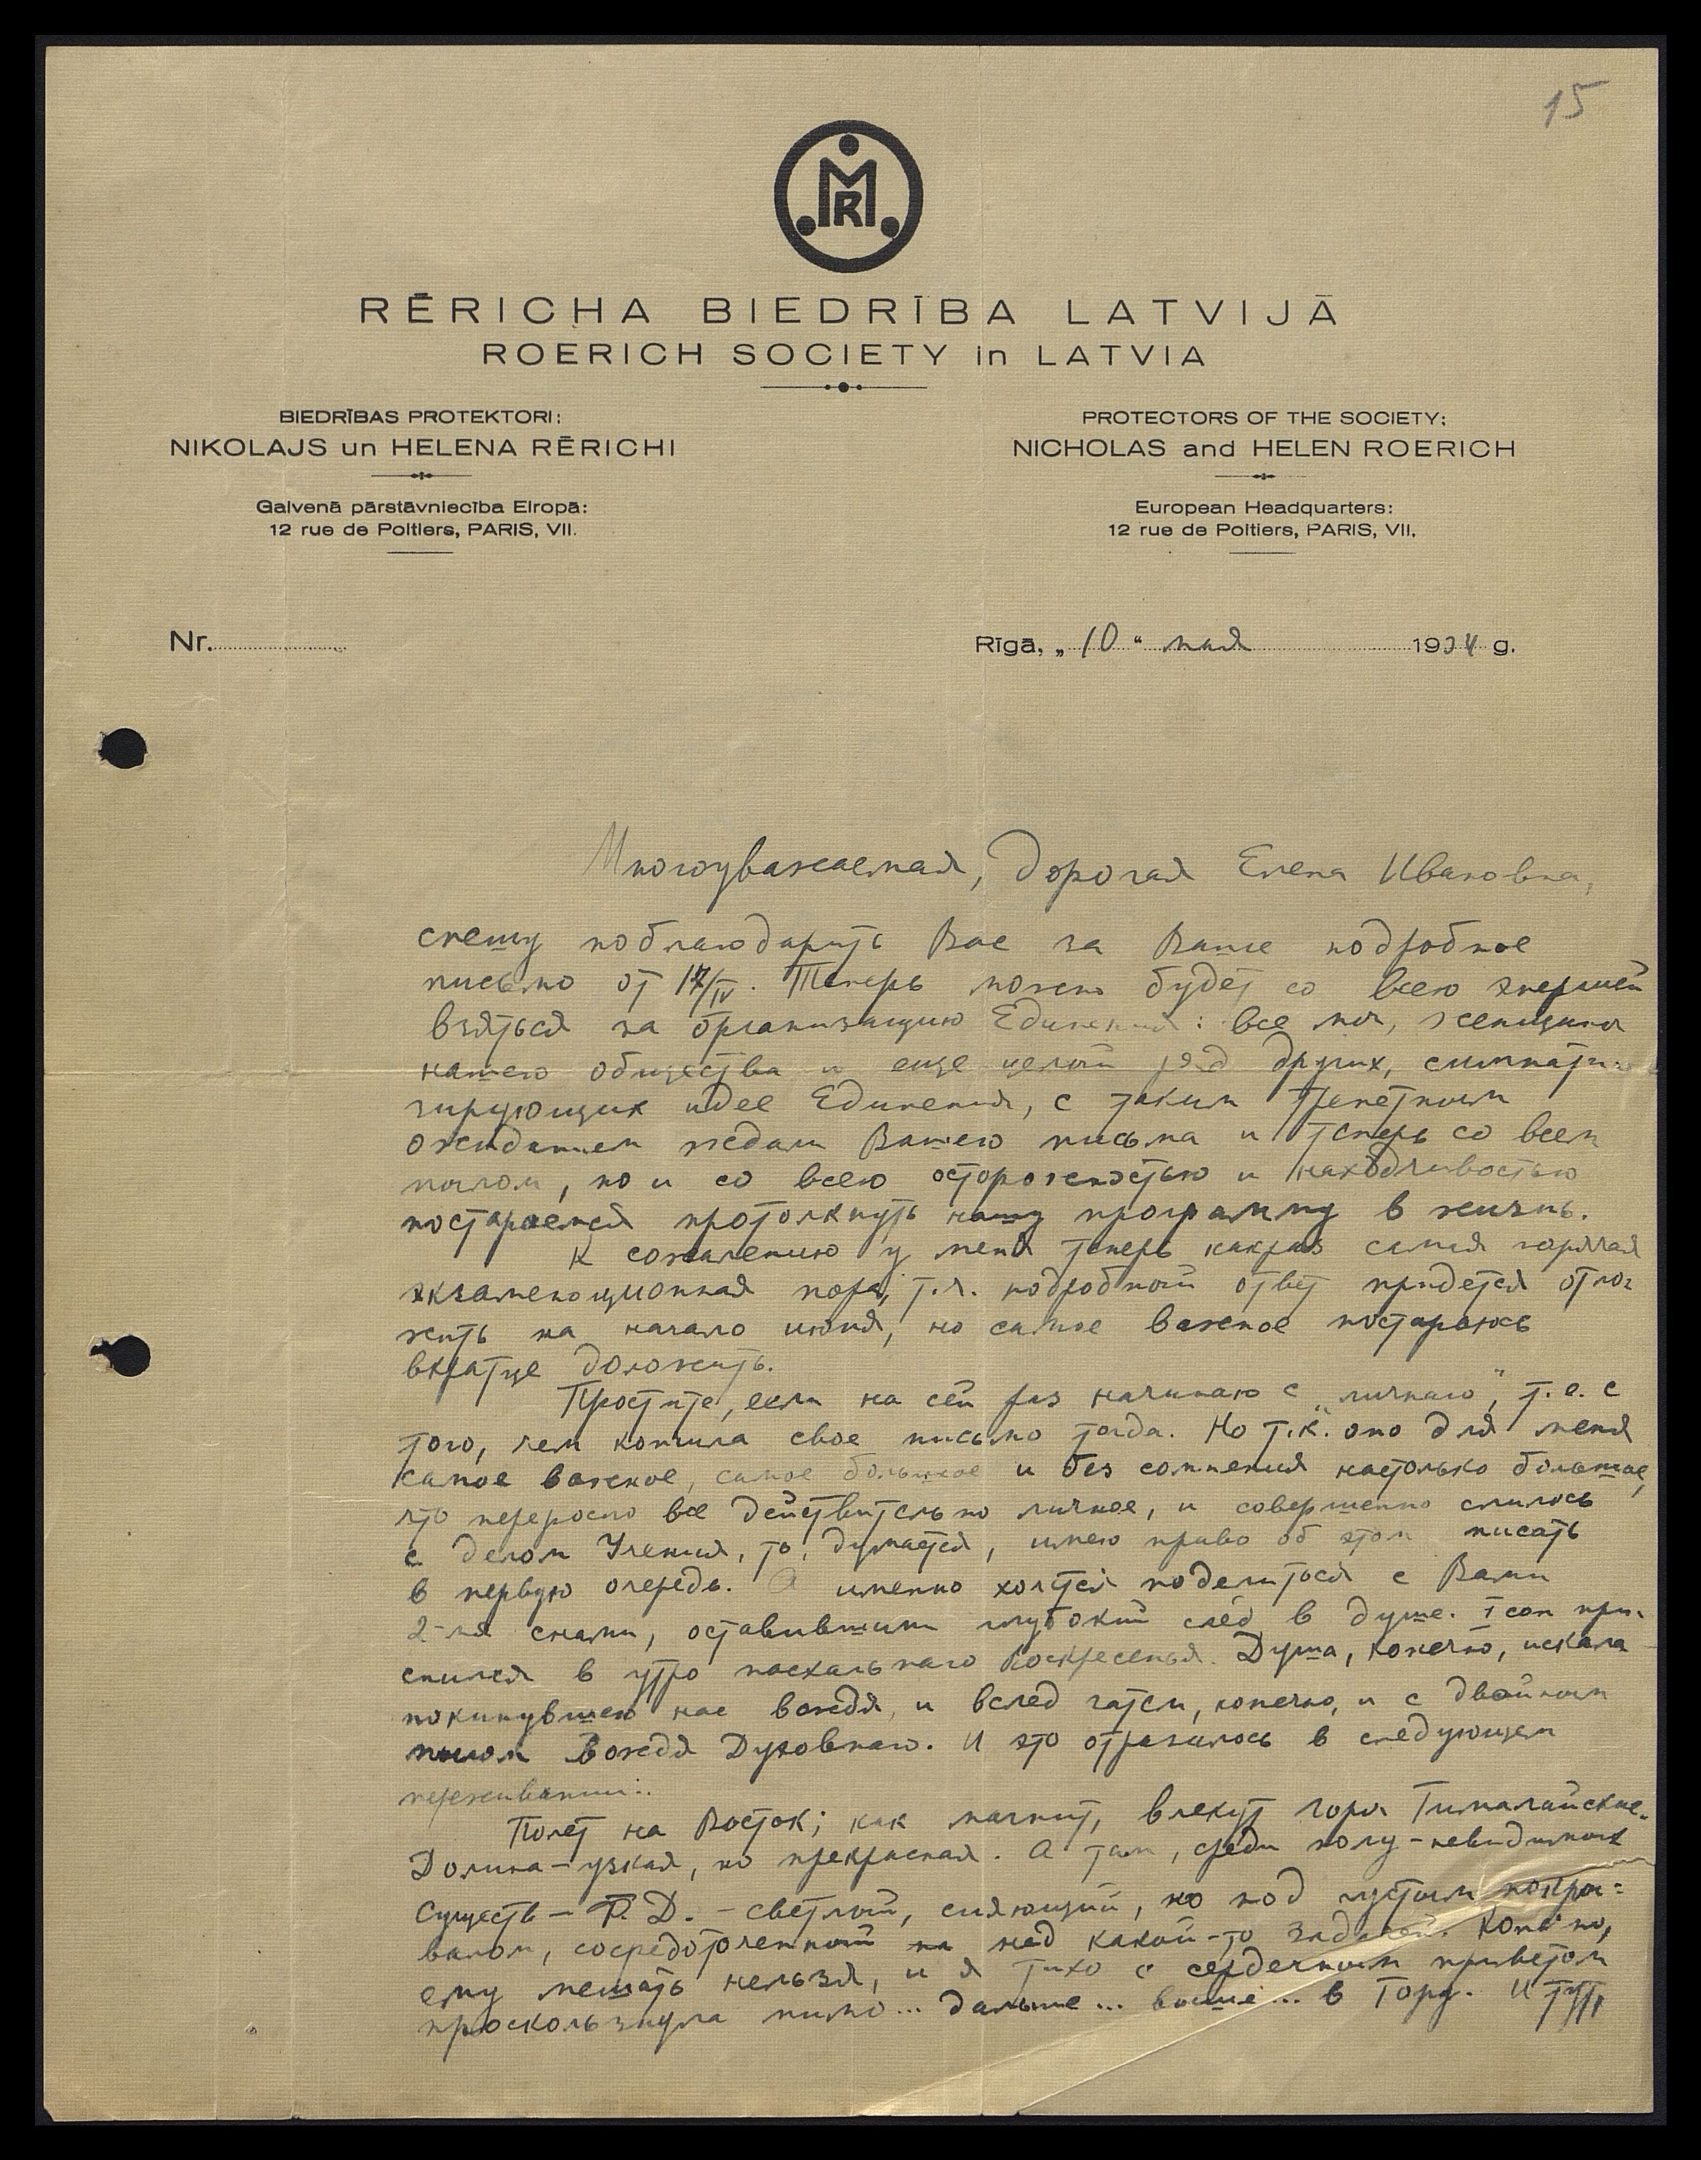 15
MR
RĒRICHA BIEDRĪBA LATVIJĀ
ROERICH SOCIETY in LATVIA
BIEDRĪBAS PROTEKTORI:
NIKOLAJS un HELENA RĒRICHI
Galvenā pārstāvniecība Eiropā:
12 rue de Poitiers, PARIS, VII.
PROTECTORS OF THE SOCIETY:
NICHOLAS and HELEN ROERICH
European Headquarters:
12 rue de Poitiers, PARIS, VII.
Nr.
Rīgā, „10“ мая 1934 g.
Многоуважаемая, Дорогая Елена Ивановна,
спешу поблагодарить Вас за Ваше подробное
письмо от 17/IV. Теперь можно будет со всею энергией
взяться за организацию Единения: все мы, женщины
нашего общества и еще целый ряд других, симпати-
зирующих идее Единения, с таким трепетным
ожиданием ждали Вашего письма и теперь со всем
пылом, но и со всею осторожностью и находчивостью
постараемся протолкнуть нашу программу в жизнь.
К сожалению у меня теперь как раз самая горячая
экзаменационная пора, т.ч. подробный ответ придется отло-
жить на начало июня, но самое важное постараюсь
вкратце доложить.
Простите, если на сей раз начинаю с „личнаго“, т.е. с
того, чем кончила свое письмо тогда. Но т.к. оно для меня
самое важное, самое большое и без сомнения настолько большое,
что переросло все действительно личное, и совершенно слилось
с делом Учения, то, думается, имею право об этом писать
в первую очередь. А именно хочется поделиться с Вами
2-мя снами, оставившими глубокий след в душе. I сон при-
снился в утро пасхальнаго Воскресенья. Душа, конечно, искала
покинувшего нас вождя, и вслед затем, конечно, и с двойным
пылом Вождя Духовнаго. И это отразилось в следующем
переживании:
Полет на Восток; как магнит, влекут горы Гималайские.
Долина – узкая, но прекрасная. А там, среди полу-невидимых
Существ – Ф. Д. – светлый, сияющий, но под густым покры-
валом, сосредоточенный на над какой-то задачей. Конечно,
ему мешать нельзя, и я тихо с сердечным приветом
проскользнула мимо... дальше... выше... в Гору. И тут,